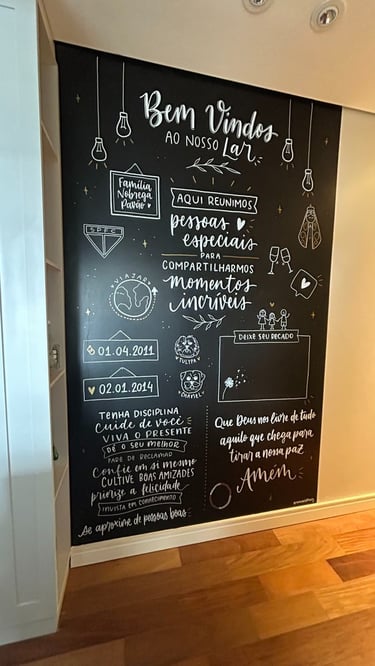 Bem Vindos
AO NOSSO Lar
Família
Nobrega
Pavão
AQUI REUNIMOS
pessoas
especiais
PARA
COMPARTILHARMOS
momentos
incríveis
SPFC
VIAJAR
01.04.2011
02.01.2014
CHANEL
DEIXE SEU RECADO
TENHA DISCIPLINA
Cuide de você
VIVA O PRESENTE
DÊ O SEU MELHOR
PARE DE RECLAMAR
Confie em si mesmo
CULTIVE BOAS AMIZADES
priorize a felicidade
INVISTA EM CONHECIMENTO
Se aproxime de pessoas boas
Que Deus nos livre de tudo
aquilo que chega para
tirar a nossa paz
Amém